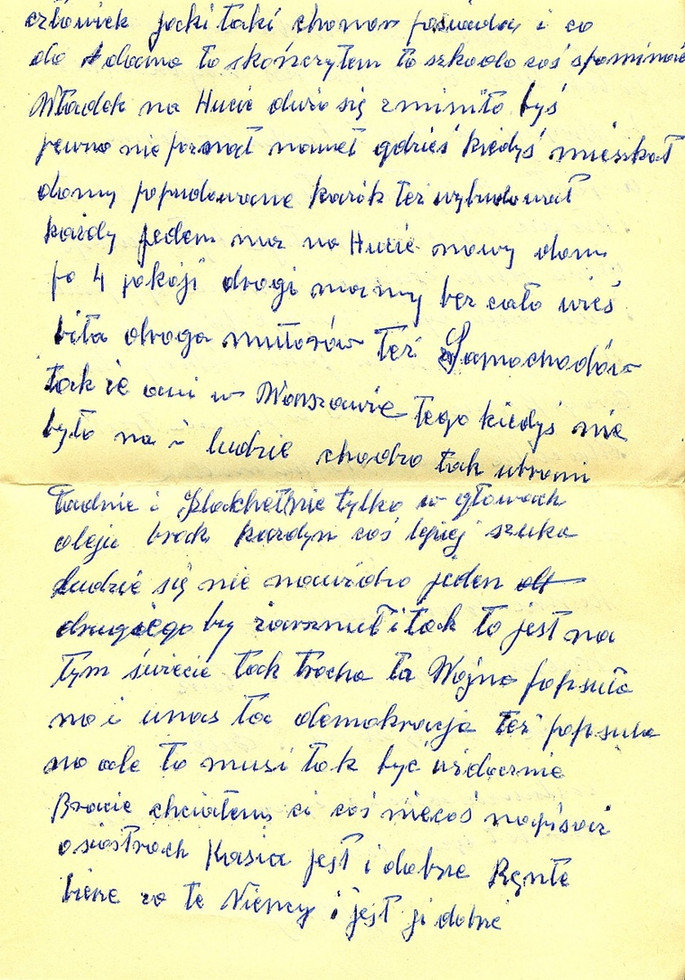 człowiek jaki taki chonor posiada i co
do Adama to skończyłem to szkoda coś spominać
Władek na Hucie dużo się zminiło byś
pewno nie poznał nawet gdzieś kiedyś mieszkał
domy popudowane Kazik też wybudował
każdy jeden ma na Hucie nowy dom
po 4 pokoji drogi mamy bez cało wieś
bita droga mutorów też Samochodów
tak że ani w Warszawie tego kiedyś nie
było na i ludzie chodzo tak ubrani
ładnie i Szlachetnie tylko w głowach
oleju brak kazdyn coś lepiej szuka
Ludzie się nie nawidzo jeden
drugiego by zarznuł i tak to jest na
tym świecie tak trocha ta Wojna popsuła
no i unas ta demokracja też popsuła
no ale to musi tak być widocznie
Bracie chciałem ci coś niecoś napisać
o siostrach Kasia jest i dobrze Rente
bierze za te Niemcy i jest ji dobrze